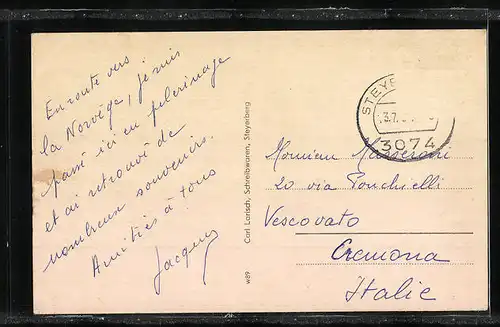 En route vers
la Norvège, je suis
passé ici en pèlerinage
et ai retrouvé de
nombreux souvenirs.
Amitiés à tous
Jacques
w89 Carl Larisch, Schreibwaren, Steyerberg
STEYE
3074
Monsieur
20 via Ponchielli
Vescovato
Cremona
Italie